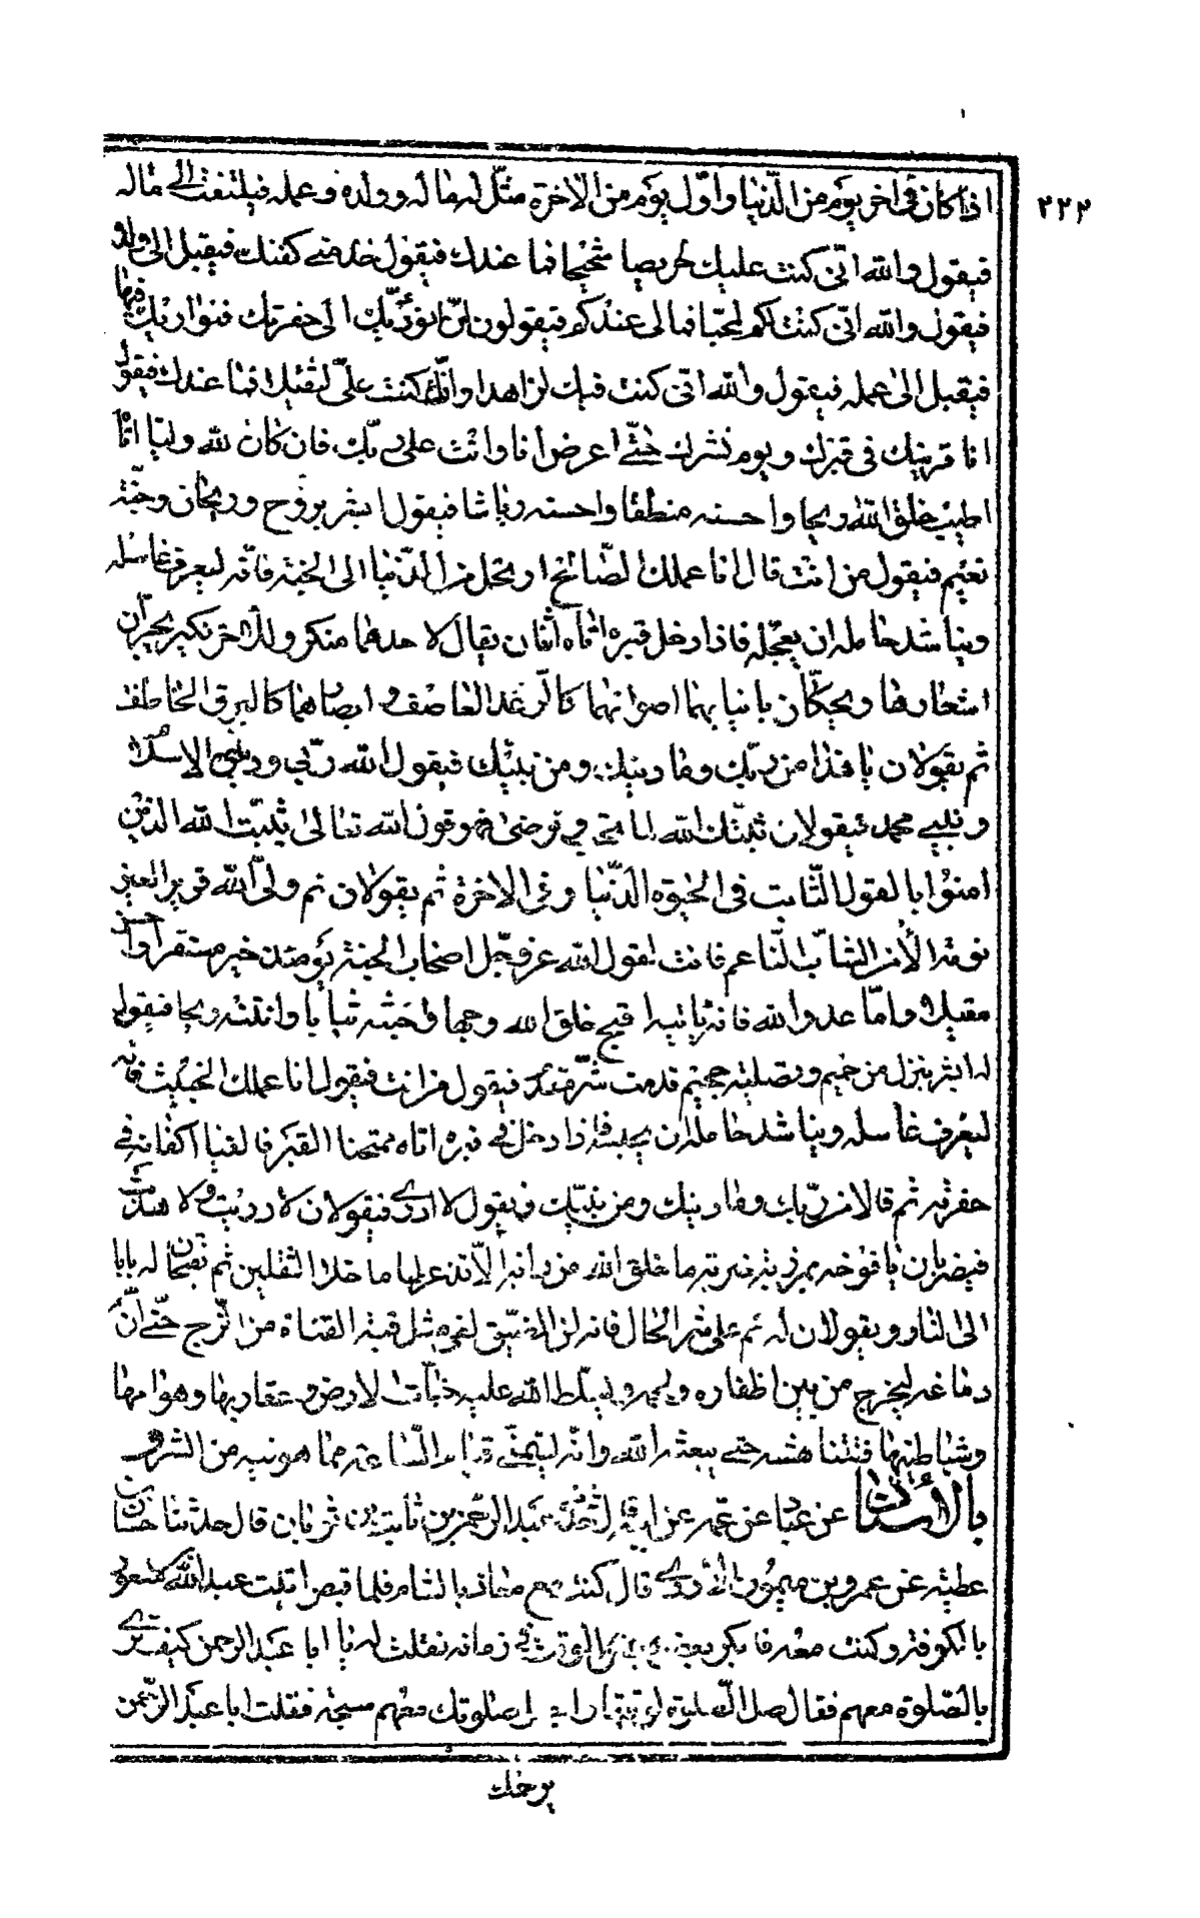 ٢٢٣
اذا كان فى اخر يوم من الدّنيا و اوّل يوم من الاخرة مثّل له ماله و ولده و عمله فيلتفت الى ماله
فيقول و الله انّى كنت عليك لحريصا شحيحا فما عندك فيقول خذ منى كفنك فيقبل الى ولده
فيقول و الله انّى كنت لكم لمحبّا فما لى عندكم فيقولون لن نؤدّيك الى حفرتك فنواريك فيها
فيقبل الى عمله فيقول و الله انّى كنت فيك لزاهدا و انّك كنت علىّ لثقيلا فما عندك فيقول
انا قرينك فى قبرك و يوم نشرك حتّى اعرض انا و انت على ربّك فان كان لله وليّا اتاه
اطيب خلق الله ريحا و احسنه منظقا و احسنه رياشا فيقول ابشر بروح و ريحان و جنّة
نعيم فيقول من انت قال انا عملك الصّالح ارتحل من الدّنيا الى الجنّة فانّه ليعرف غاسله
و يناشد حامله ان يعجّله فاذا دخل قبره اتاه اثنان يقال لاحدهما منكر و للاخر نكير يجيران
اشعارها و يحكّان بانيابهما اصواتهما كالرّعد العاصف و ابصارهما كالبرق الخاطف
ثم يقولان يا هذا من ربّك و ما دينك و من نبيّك فيقول الله ربّى و دينى الاسلام
و نبيى محمد فيقولان ثبّتك الله لما تحب و ترضى فهو قول الله تعالى يثبّت الله الذين
امنوا بالقول الثّابت فى الحيوة الدّنيا و فى الاخرة ثم يقولان نم ولىّ الله قرير العين
نومة الأمن الشابّ النّاعم فانت بقول الله عز و جل اصحاب الجنة يومئذ خير مستقرا و احسن
مقيلا و امّا عدو الله فانه ياتيه اقبح خلق الله وجها و اخبثه ثيابا و انتنه ريحا فيقول
له ابشر بنزل من حميم و تصلية جحيم قدمت شرّ مقدم فيقول من انت فيقول انا عملك الخبيث فانه
ليعرف غاسله و يناشد حامله ان يحبسه فاذا دخل فى قبره اتاه ممتحنا القبر فالقيا اكفانه فى
حفرته ثم قالا من ربّك و ما دينك و من نبيّك فيقول لا ادرى فيقولان لا دريت و لا هديت
فيضربان يافوخه بمرزبة ضربة ما خلق الله من دابة الّا تذعر لها ما خلا الثقلين ثم يفتحان له بابا
الى النار و يقولان له نم على شر الحال فانه لن الضيق لفيه مثل قبة القناة من الزّج حتّى انّ
دماغه ليخرج من بين اظفاره و لحمه و يسلّط الله عليه حيّات الارض و عقاربها و هوامها
و شياطينها فتنهشه حتى يبعثه الله و انه ليتمنى قيام السّاعة مما هو فيه من الشرور
بالاسناد عن عباد عن عمر عن ابيه عبد الرحمن بن ثابت بن ثوبان قال حدثنا حسّان بن
عطيّه عن عمرو بن ميمون الاودى قال كنت مع معاذ بالشام فلما قبض اتيت عبد الله بن مسعود
بالكوفة و كنت معه فانكر بعض الوقت فى زمانه فقلت له يا ابا عبد الرحمن كيف ترى
بالصّلوة معهم فقال صل الصّلوة لوقتها و اجعل صلوتك معهم سبحة فقلت ابا عبد الرّحمن
يرحمك